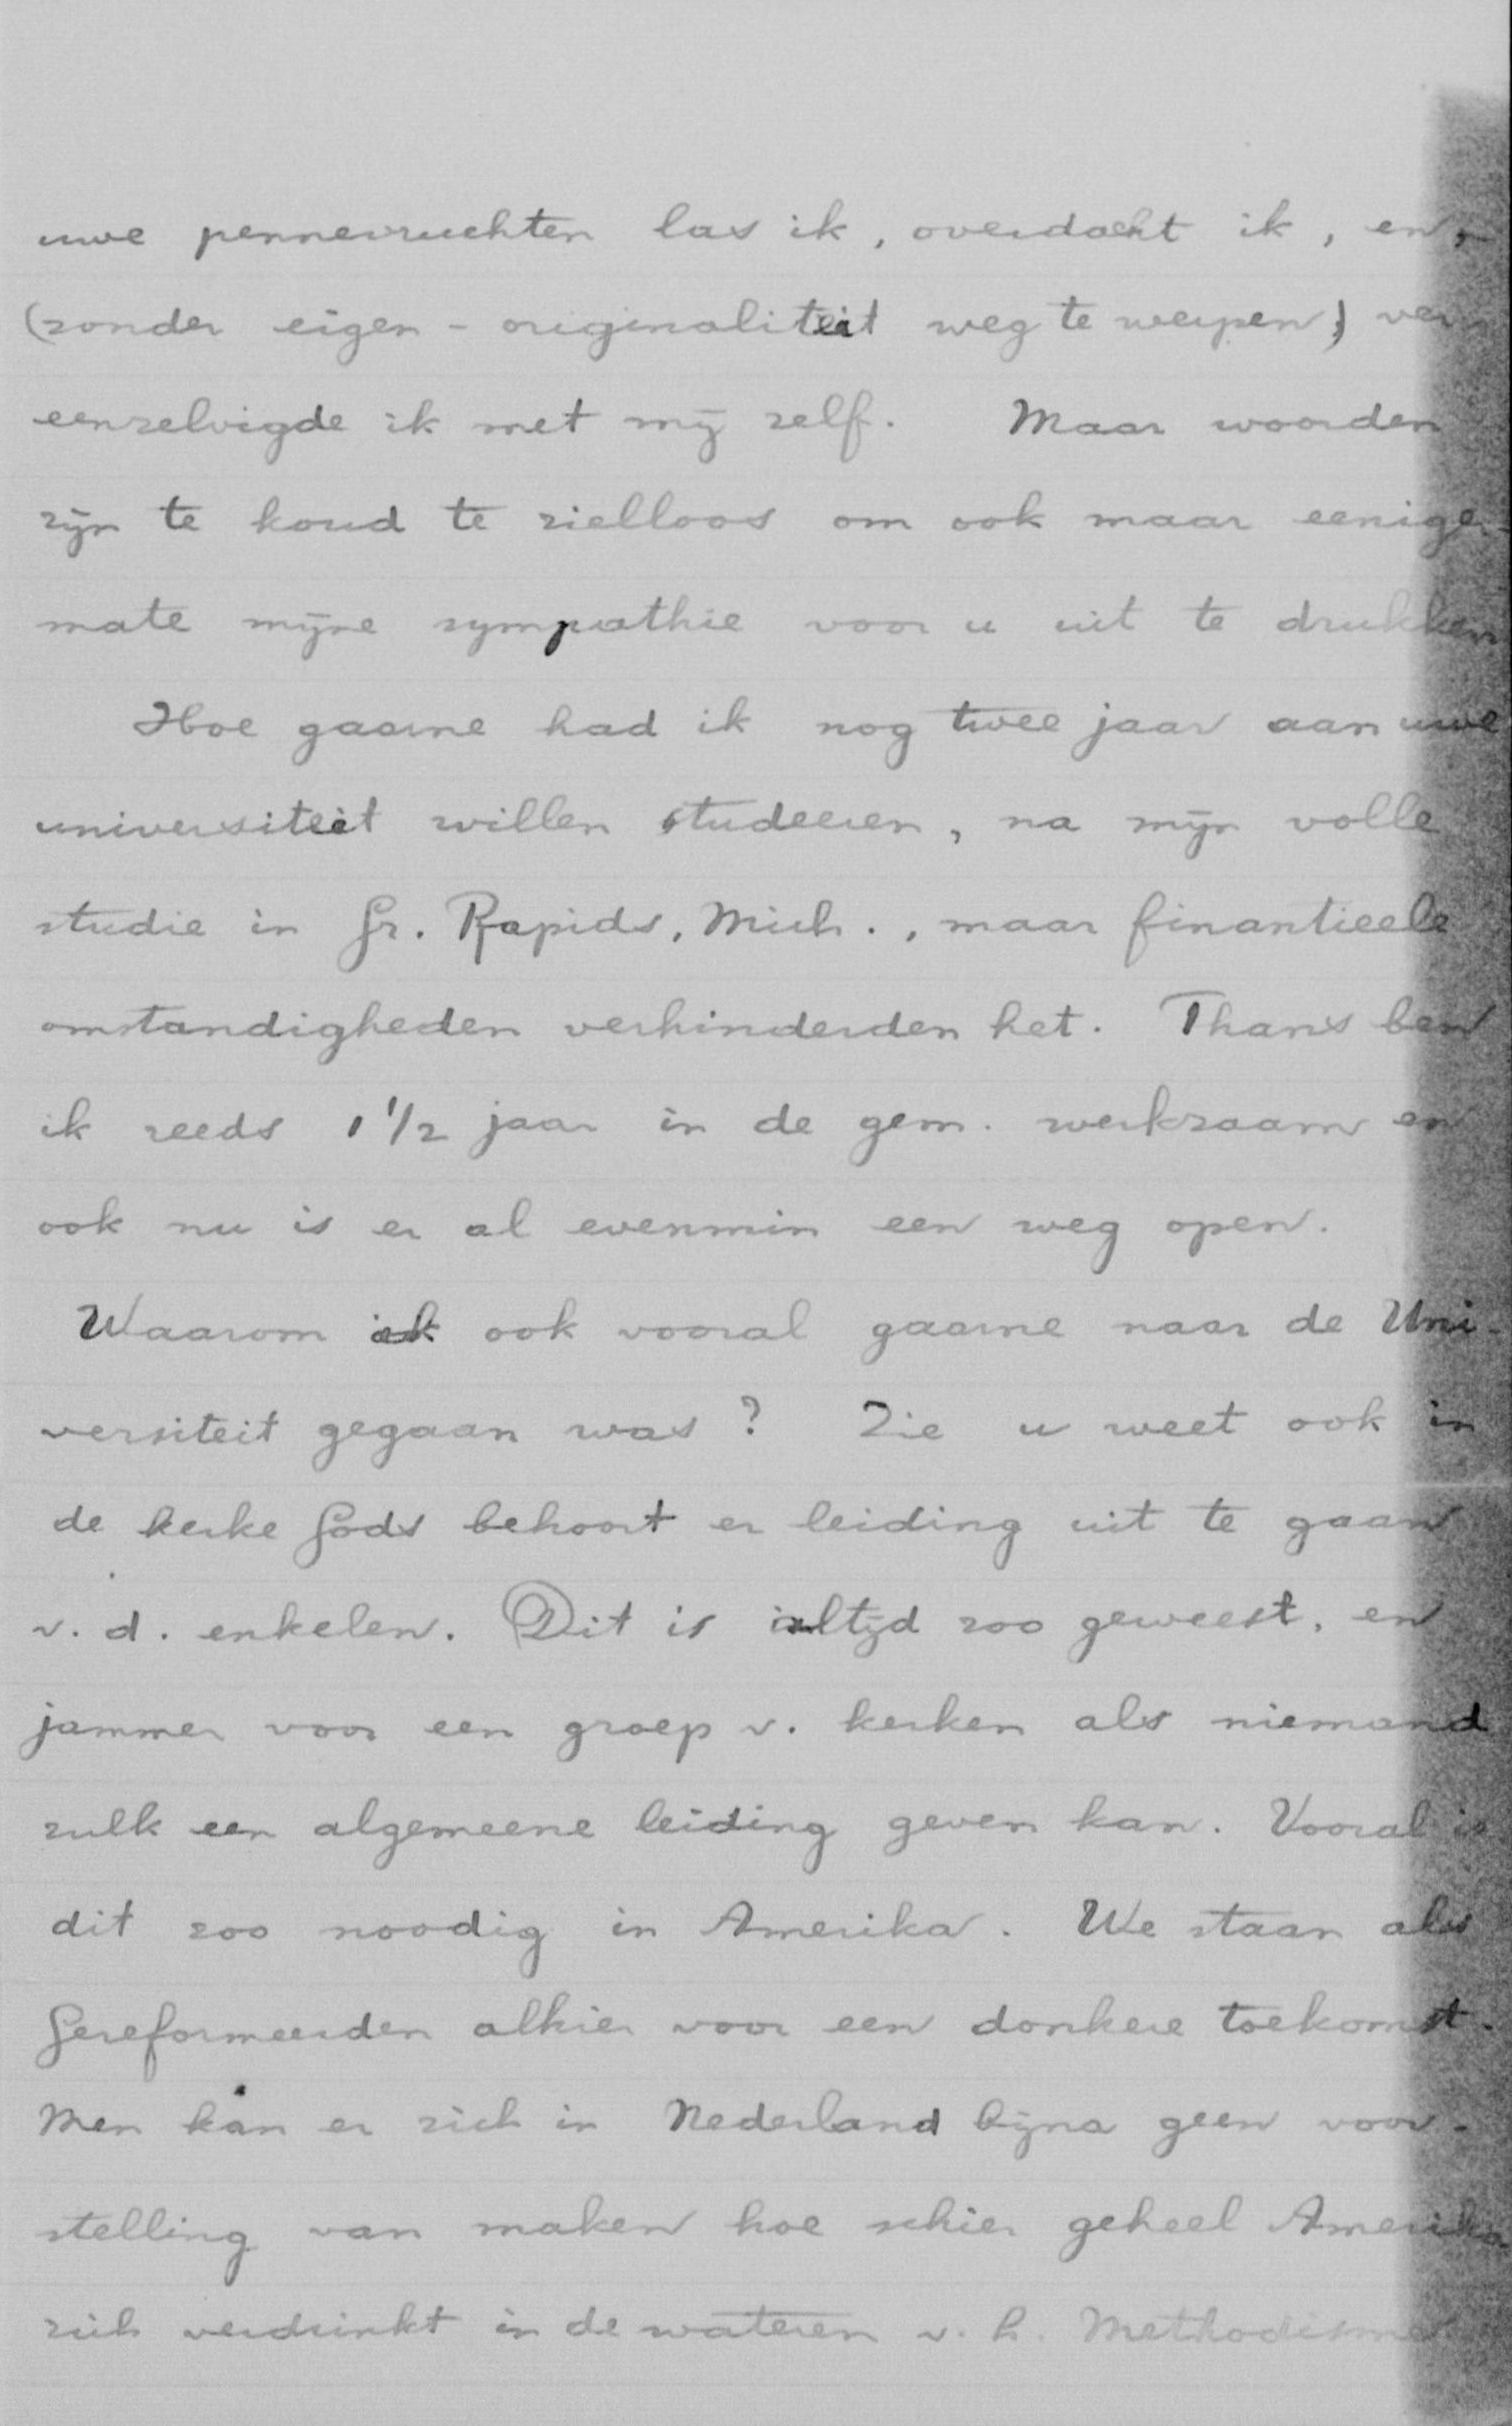 uwe pennevruchten las ik, overdacht ik, en,
(zonder eigen - originaliteit weg te werpen) ver-
eenzelvigde ik met mij zelf. Maar woorden
zijn te koud te zielloos om ook maar eeniger-
mate mijne sympathie voor u uit te drukken
Hoe gaarne had ik nog twee jaar aan uwe
universiteit willen studeeren, na mijn volle
studie in Gr. Rapids, Mich., maar finantieele
omstandigheden verhinderden het. Thans ben
ik reeds 1 1/2 jaar in de gem. werkzaam en
ook nu is er al evenmin een weg open.
Waarom ik ook vooral gaarne naar de Uni-
versiteit gegaan was? Zie u weet ook in
de kerke Gods behoort er leiding uit te gaan
v. d. enkelen. Dit is altijd zoo geweest, en
jammer voor een groep v. kerken als niemand
zulk een algemeene leiding geven kan. Vooral is
dit zoo noodig in Amerika. We staan als
Gereformeerden alhier voor een donkere toekomst.
Men kan er zich in Nederland bijna geen voor-
stelling van maken hoe schier geheel Amerika
zich verdrinkt in de wateren v. h. Methodisme